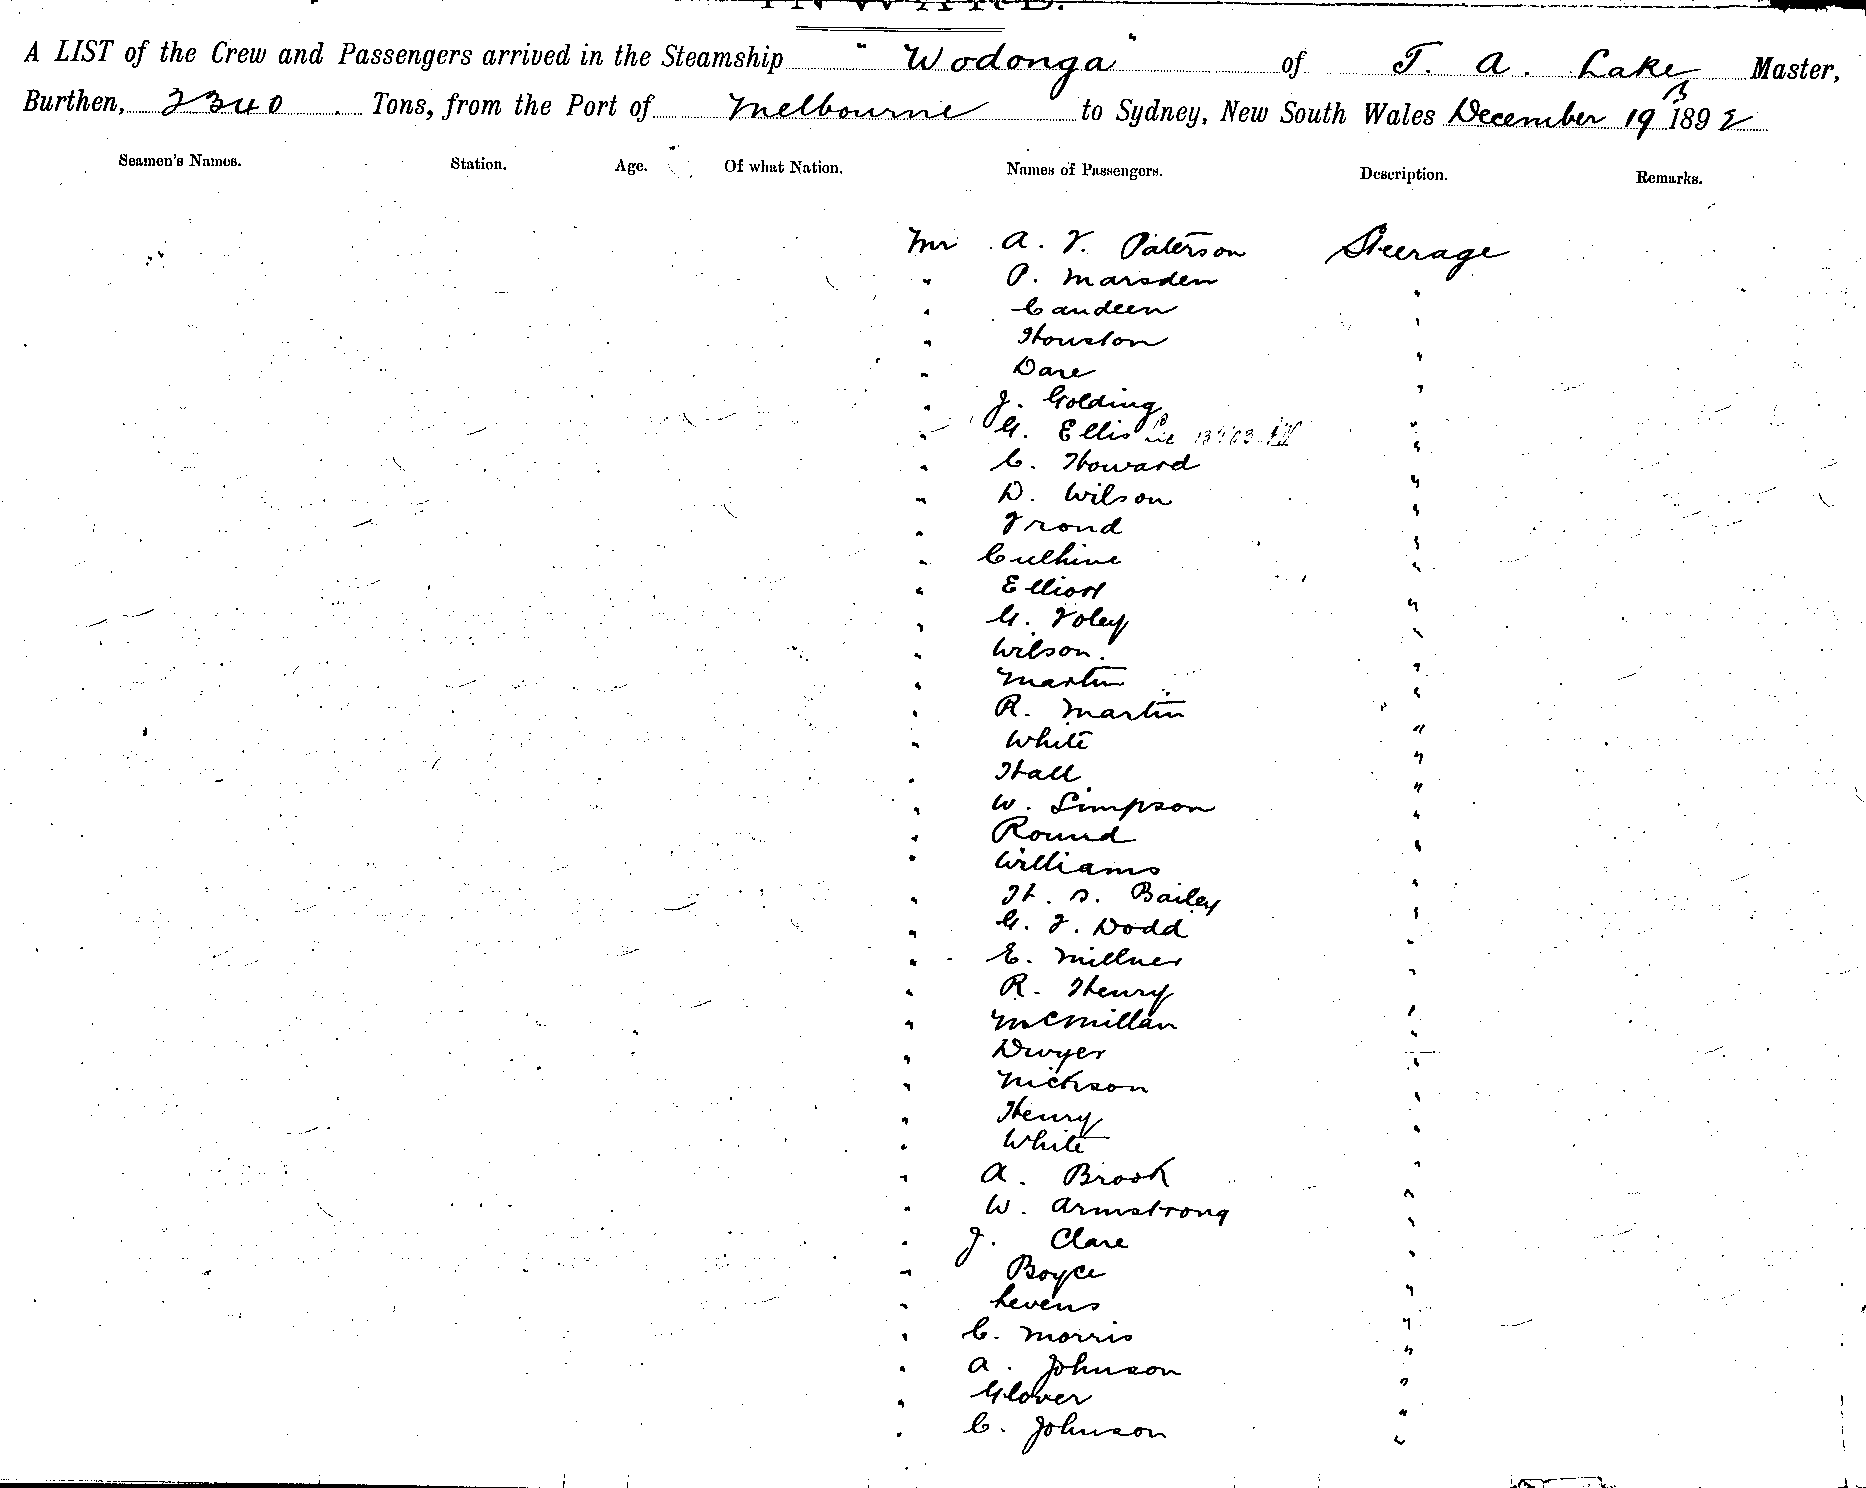 INWARD.
A LIST of the Crew and Passengers arrived in the Steamship "Wodonga" of T. A. Lake Master,
Burthen, 2340 Tons, from the Port of Melbourne to Sydney, New South Wales December 19th 1892
Seamen's Names. Station. Age. Of what Nation. Names of Passengers. Description. Remarks.
Mr A. F. Paterson Steerage
" P. Marsden "
" Candeen "
" Houston "
" Dare "
" J. Golding "
" G. Ellis "
" C. Howard "
" D. Wilson "
" Frond "
" Culhine "
" Elliott "
" G. Foley "
" Wilson. "
" Martin "
" R. Martin "
" White "
" Hall "
" W. Simpson "
" Round "
" Williams "
" H. S. Bailey "
" G. F. Dodd "
" E. Millner "
" R. Henry "
" McMillan "
" Dwyer "
" Nickson "
" Henry "
" White "
" A. Brook "
" W. Armstrong "
" J. Clare "
" Boyce "
" Levens "
" C. Morris "
" A. Johnson "
" Glover "
" C. Johnson "